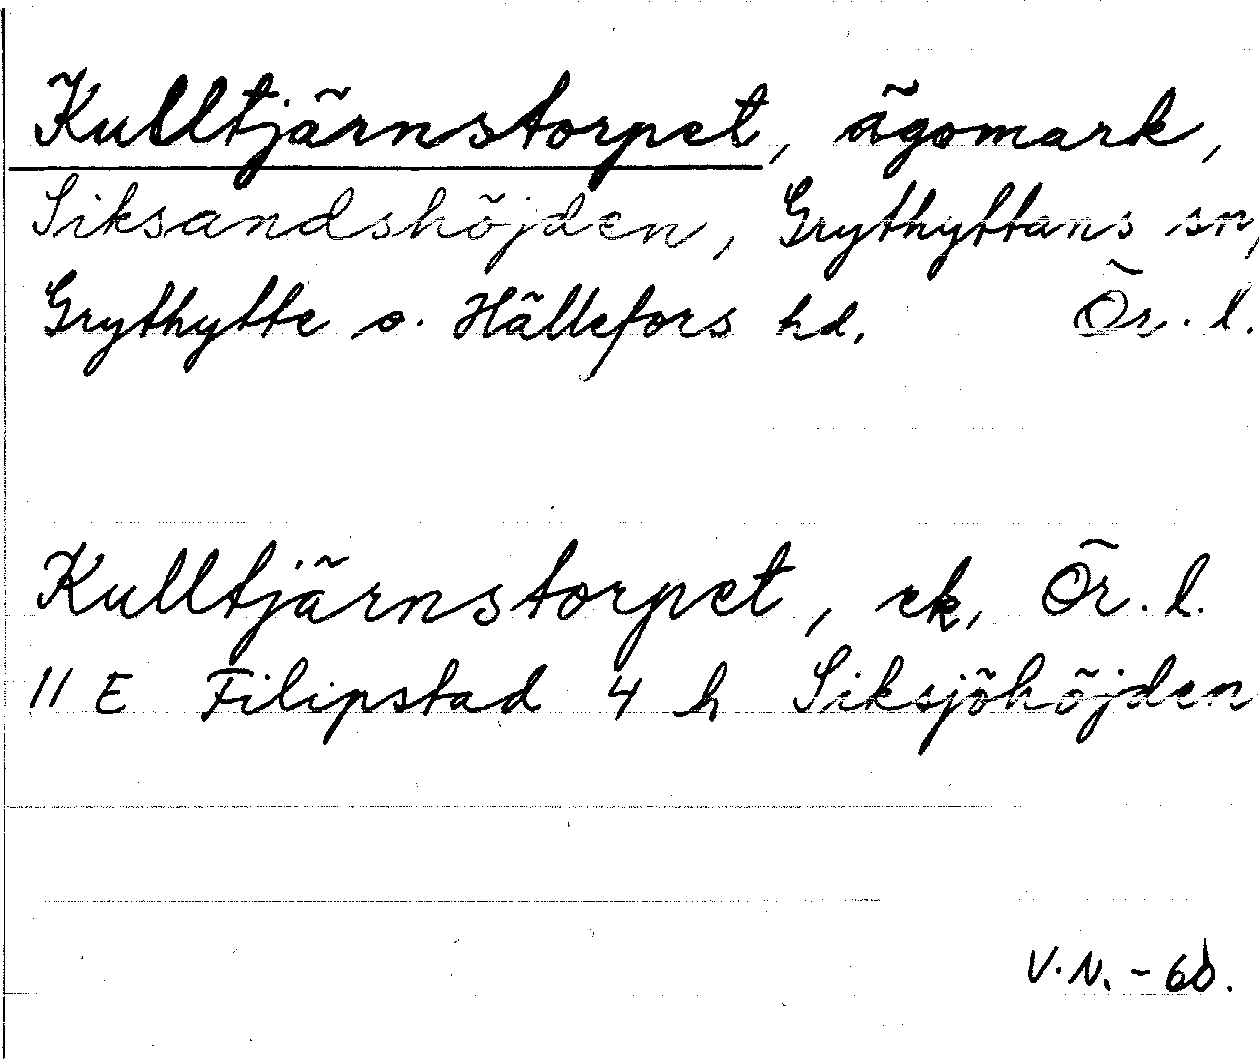 Kulltjärnstorpet, ägomark,
Siksandshöjden, Grythyttans sn,
Grythytte o. Hällefors hd. Ör. l.
Kulltjärnstorpet, ek, Ör. l.
11 E Filipstad 4 h Siksjöhöjden
V.N. - 60.